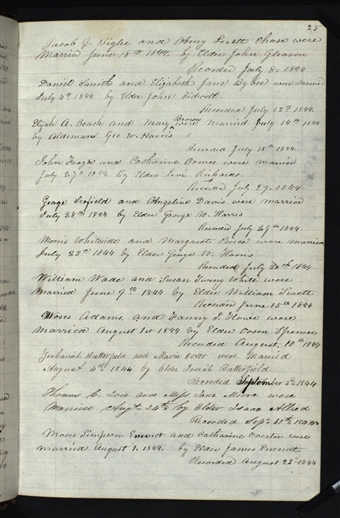 25
Jacob G. Bigler and Amy Lovett Chase were
Married June 18th 1844. by Elder John Gleason
Recorded July 8. 1844
Daniel Smith and Elizabeth Jane Bybee were married
July 4th 1844 by Elder John
Recorded July 12th 1844.
Elijah A. Beach and Mary Brown were Married July 14th 1844
by Alderman Geo W. Harris
Record July 18th 1844.
John and Catharine were married
July 27th 1844 by Elder Levi Richards
Recorded July 29. 1844
George Scofield and Angelina Davis were married
July 28th 1844 by Elder George W. Harris
Recorded July 29th 1844
Moris Whitesides and Margaret were married
July 23rd 1844 by Elder George W. Harris
Recorded July 1844
William Wade and Susan Ewing White were
Married June 9th 1844 by Elder William
Recorder June 15th 1844
Moses Adams, and Fanny L. Lowe were
Married August 1st 1844 by Elder Orson Spencer
Recorded August 10th 1844
Zechariah Butterfield and Maria were Married
August 4th 1844 by Elder Josiah Butterfield
Recorded September 5th 1844
Thomas C. and Miss Jane Moore were
Married Augt 24th by Elder Isaac Allred
Recorded Sept 1844
Moses Simpson Emmet and Catharine were
married August 1. 1844. by Elder James Emmet
Recorded August 23 1844